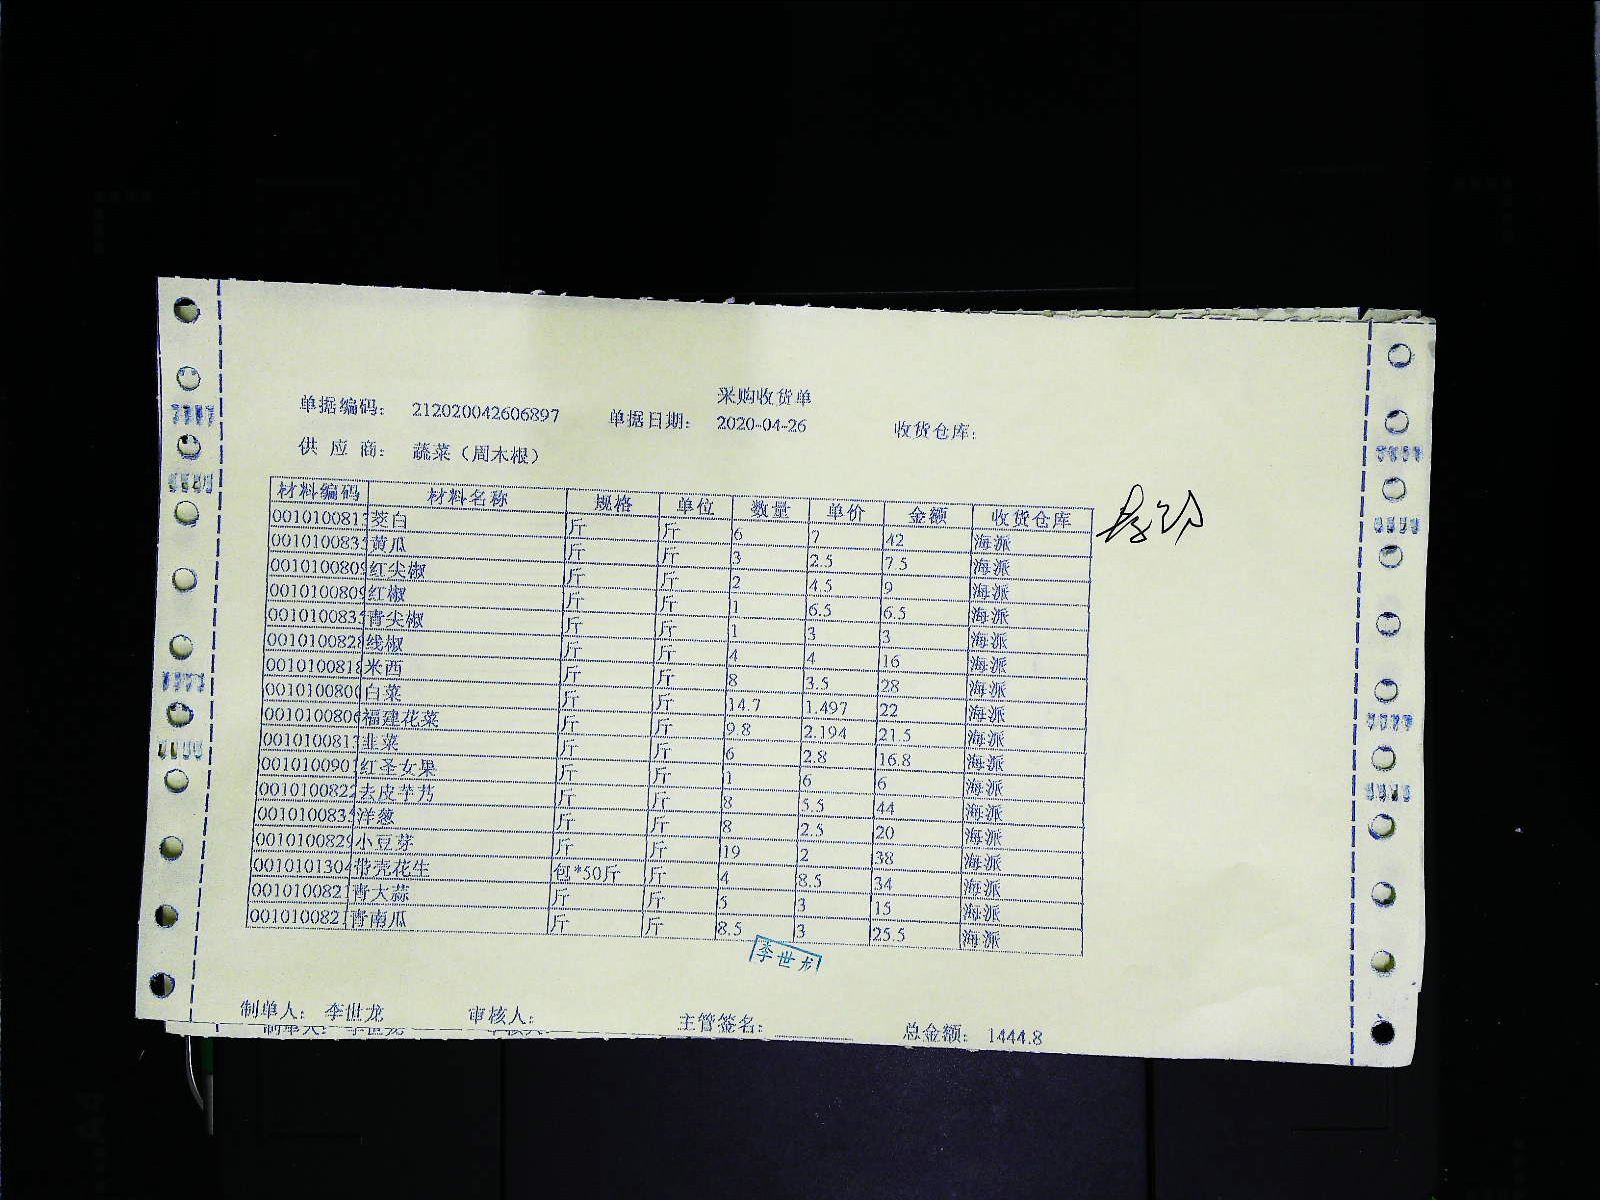 采购收货单
单据编码： 212020042606897 单据日期： 2020-04-26 收货仓库：
供 应 商： 蔬菜（周木根）
材料编码 材料名称 规格 单位 数量 单价 金额 收货仓库
001010081 茭白 斤 斤 6 7 42 海派
001010083 黄瓜 斤 斤 3 2.5 7.5 海派
001010080 红尖椒 斤 斤 2 4.5 9 海派
001010080 红椒 斤 斤 1 6.5 6.5 海派
001010083 青尖椒 斤 斤 1 3 3 海派
001010082 线椒 斤 斤 4 4 16 海派
001010081 米西 斤 斤 8 3.5 28 海派
001010080 白菜 斤 斤 14.7 1.497 22 海派
001010080 福建花菜 斤 斤 9.8 2.194 21.5 海派
001010081 韭菜 斤 斤 6 2.8 16.8 海派
001010090 红圣女果 斤 斤 1 6 6 海派
001010082 去皮芋艿 斤 斤 8 5.5 44 海派
001010083 洋葱 斤 斤 8 2.5 20 海派
001010082 小豆芽 斤 斤 19 2 38 海派
001010130 带壳花生 包*50斤 斤 4 8.5 34 海派
001010082 青大蒜 斤 斤 5 3 15 海派
001010082 青南瓜 斤 斤 8.5 3 25.5 海派
李世龙
制单人： 李世龙 审核人： 主管签名： 总金额： 1444.8